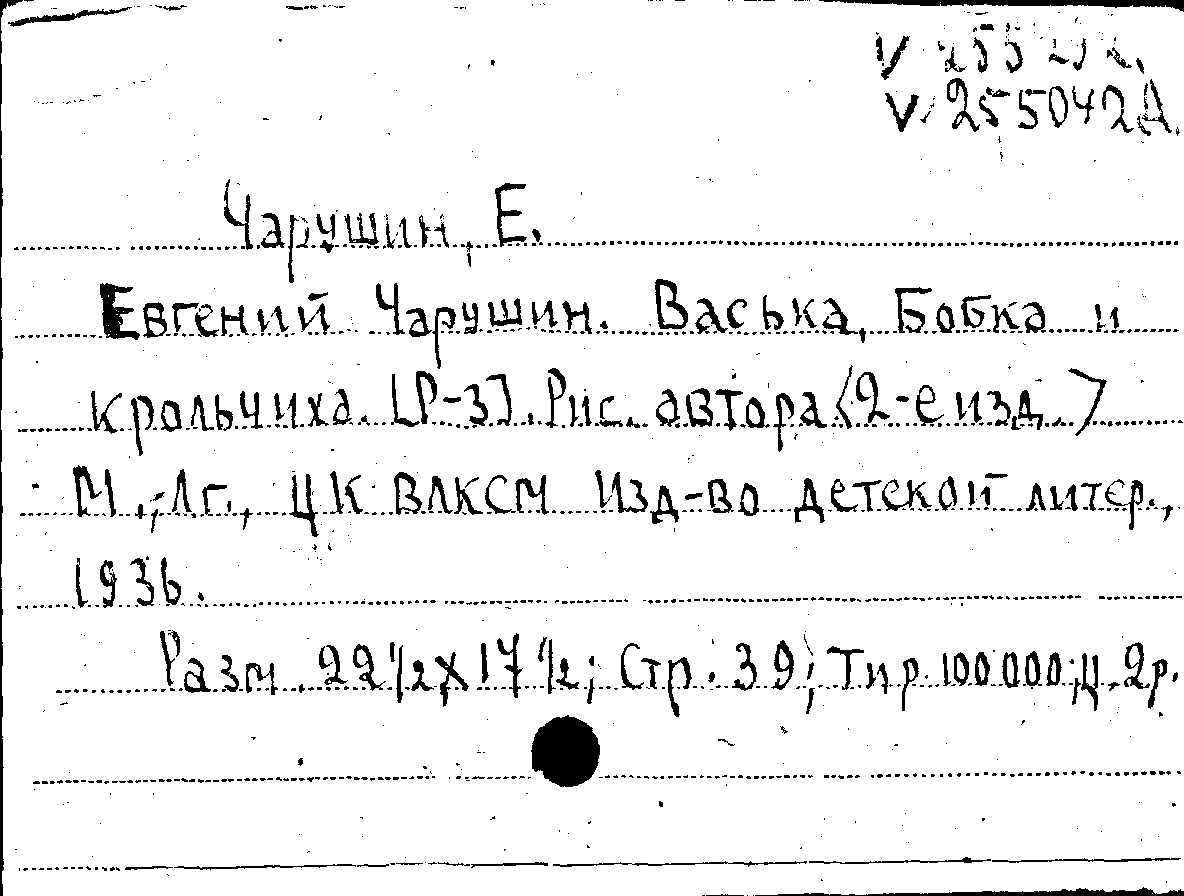 V 255042А.
Чарушин, Е.
Евгений Чарушин. Васька, Бобка и
крольчиха. [Р-з]. Рис. автора <2-е изд.>
М.,-Лг., ЦК ВЛКСМ Изд-во детской литер.,
1936.
Разм. 22 1/2 х 17 1/2; Стр. 39; Тир. 100 000; ц. 2р.